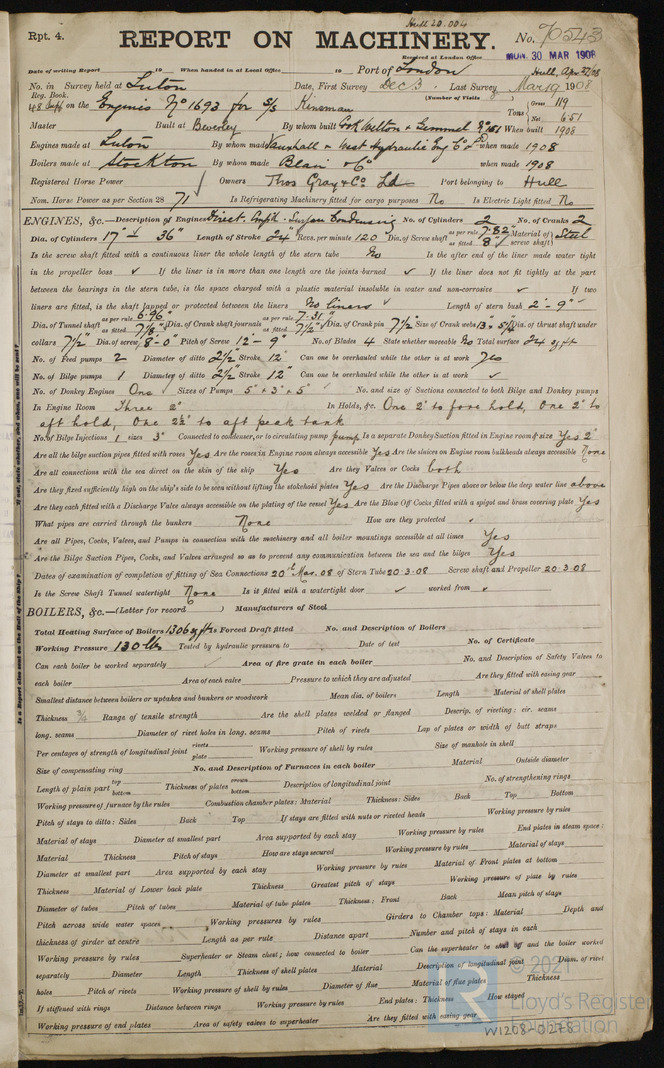 Hull 20.004
Rpt. 4. REPORT ON MACHINERY. No. 70543
Received at London Office MON. 30 MAR 1908
Date of writing Report 19 When handed in at Local Office 19 Port of London Hull,
No. in Survey held at Luton Date, First Survey Dec 3 Last Survey Mar 19 1908
Reg. Book. (Number of Visits )
on the Engines No 1693 for S/S Kinsman Tons Gross 119 Net 6.51
Master Built at Beverley By whom built Cook Welton & Gemmell When built 1908
Engines made at Luton By whom made Vauxhall & West Hydraulic Eng Co Ld when made 1908
Boilers made at Stockton By whom made Blair & Co when made 1908
Registered Horse Power Owners Thos Gray & Co Ld Port belonging to Hull
Nom. Horse Power as per Section 28 71 Is Refrigerating Machinery fitted for cargo purposes No Is Electric Light fitted No
ENGINES, &c.—Description of Engines Direct. Surface Condensing No. of Cylinders 2 No. of Cranks 2
Dia. of Cylinders 17" – 36" Length of Stroke 24" Revs. per minute 120 Dia. of Screw shaft as per rule 7.82" as fitted 8" Material of screw shaft Steel
Is the screw shaft fitted with a continuous liner the whole length of the stern tube No Is the after end of the liner made water tight
in the propeller boss ✓ If the liner is in more than one length are the joints burned ✓ If the liner does not fit tightly at the part
between the bearings in the stern tube, is the space charged with a plastic material insoluble in water and non-corrosive ✓ If two
liners are fitted, is the shaft lapped or protected between the liners No liners ✓ Length of stern bush 2'-9"
Dia. of Tunnel shaft as per rule 6.96" as fitted 7 1/8" Dia. of Crank shaft journals as per rule 7.31" as fitted 7 1/2" Dia. of Crank pin 7 1/2" Size of Crank webs 13" x 5 1/4" Dia. of thrust shaft under
collars 7 1/2" Dia. of screw 8'-0" Pitch of Screw 12'-9" No. of Blades 4 State whether moveable No Total surface 24 sq ft
No. of Feed pumps 2 Diameter of ditto 2 1/2" Stroke 12" Can one be overhauled while the other is at work Yes
No. of Bilge pumps 1 Diameter of ditto 2 1/2" Stroke 12" Can one be overhauled while the other is at work ✓
No. of Donkey Engines One Sizes of Pumps 5" x 3" x 5" No. and size of Suctions connected to both Bilge and Donkey pumps
In Engine Room Three 2" In Holds, &c. One 2" to fore hold, One 2" to
aft hold, One 2 1/2" to aft peak tank
No. of Bilge Injections 1 sizes 3" Connected to condenser, or to circulating pump pump Is a separate Donkey Suction fitted in Engine room & size Yes 2"
Are all the bilge suction pipes fitted with roses Yes Are the roses in Engine room always accessible Yes Are the sluices on Engine room bulkheads always accessible None
Are all connections with the sea direct on the skin of the ship Yes Are they Valves or Cocks both
Are they fixed sufficiently high on the ship's side to be seen without lifting the stokehold plates Yes Are the Discharge Pipes above or below the deep water line above
Are they each fitted with a Discharge Valve always accessible on the plating of the vessel Yes Are the Blow Off Cocks fitted with a spigot and brass covering plate Yes
What pipes are carried through the bunkers None How are they protected ✓
Are all Pipes, Cocks, Valves, and Pumps in connection with the machinery and all boiler mountings accessible at all times Yes
Are the Bilge Suction Pipes, Cocks, and Valves arranged so as to prevent any communication between the sea and the bilges Yes
Dates of examination of completion of fitting of Sea Connections 20th Mar. 08 of Stern Tube 20.3.08 Screw shaft and Propeller 20.3.08
Is the Screw Shaft Tunnel watertight None Is it fitted with a watertight door ✓ worked from ✓
BOILERS, &c.—(Letter for record ) Manufacturers of Steel
Total Heating Surface of Boilers 1306 sq ft Is Forced Draft fitted No. and Description of Boilers
Working Pressure 130 lbs Tested by hydraulic pressure to Date of test No. of Certificate
Can each boiler be worked separately Area of fire grate in each boiler No. and Description of Safety Valves to
each boiler Area of each valve Pressure to which they are adjusted Are they fitted with easing gear
Smallest distance between boilers or uptakes and bunkers or woodwork Mean dia. of boilers Length Material of shell plates
Thickness Range of tensile strength Are the shell plates welded or flanged Descrip. of riveting: cir. seams
long. seams Diameter of rivet holes in long. seams Pitch of rivets Lap of plates or width of butt straps
Per centages of strength of longitudinal joint rivets plate Working pressure of shell by rules Size of manhole in shell
Size of compensating ring No. and Description of Furnaces in each boiler Material Outside diameter
Length of plain part top bottom Thickness of plates crown bottom Description of longitudinal joint No. of strengthening rings
Working pressure of furnace by the rules Combustion chamber plates: Material Thickness: Sides Back Top Bottom
Pitch of stays to ditto: Sides Back Top If stays are fitted with nuts or riveted heads Working pressure by rules
Material of stays Diameter at smallest part Area supported by each stay Working pressure by rules End plates in steam space:
Material Thickness Pitch of stays How are stays secured Working pressure by rules Material of stays
Diameter at smallest part Area supported by each stay Working pressure by rules Material of Front plates at bottom
Thickness Material of Lower back plate Thickness Greatest pitch of stays Working pressure of plate by rules
Diameter of tubes Pitch of tubes Material of tube plates Thickness: Front Back Mean pitch of stays
Pitch across wide water spaces Working pressures by rules Girders to Chamber tops: Material Depth and
thickness of girder at centre Length as per rule Distance apart Number and pitch of stays in each
Working pressure by rules Superheater or Steam chest; how connected to boiler Can the superheater be shut off and the boiler worked
separately Diameter Length Thickness of shell plates Material Description of longitudinal joint Diam. of rivet
holes Pitch of rivets Working pressure of shell by rules Diameter of flue Material of flue plates Thickness
If stiffened with rings Distance between rings Working pressure by rules End plates: Thickness How stayed
Working pressure of end plates Area of safety valves to superheater Are they fitted with easing gear
© 2021
Lloyd's Register
Foundation
W1208-0278